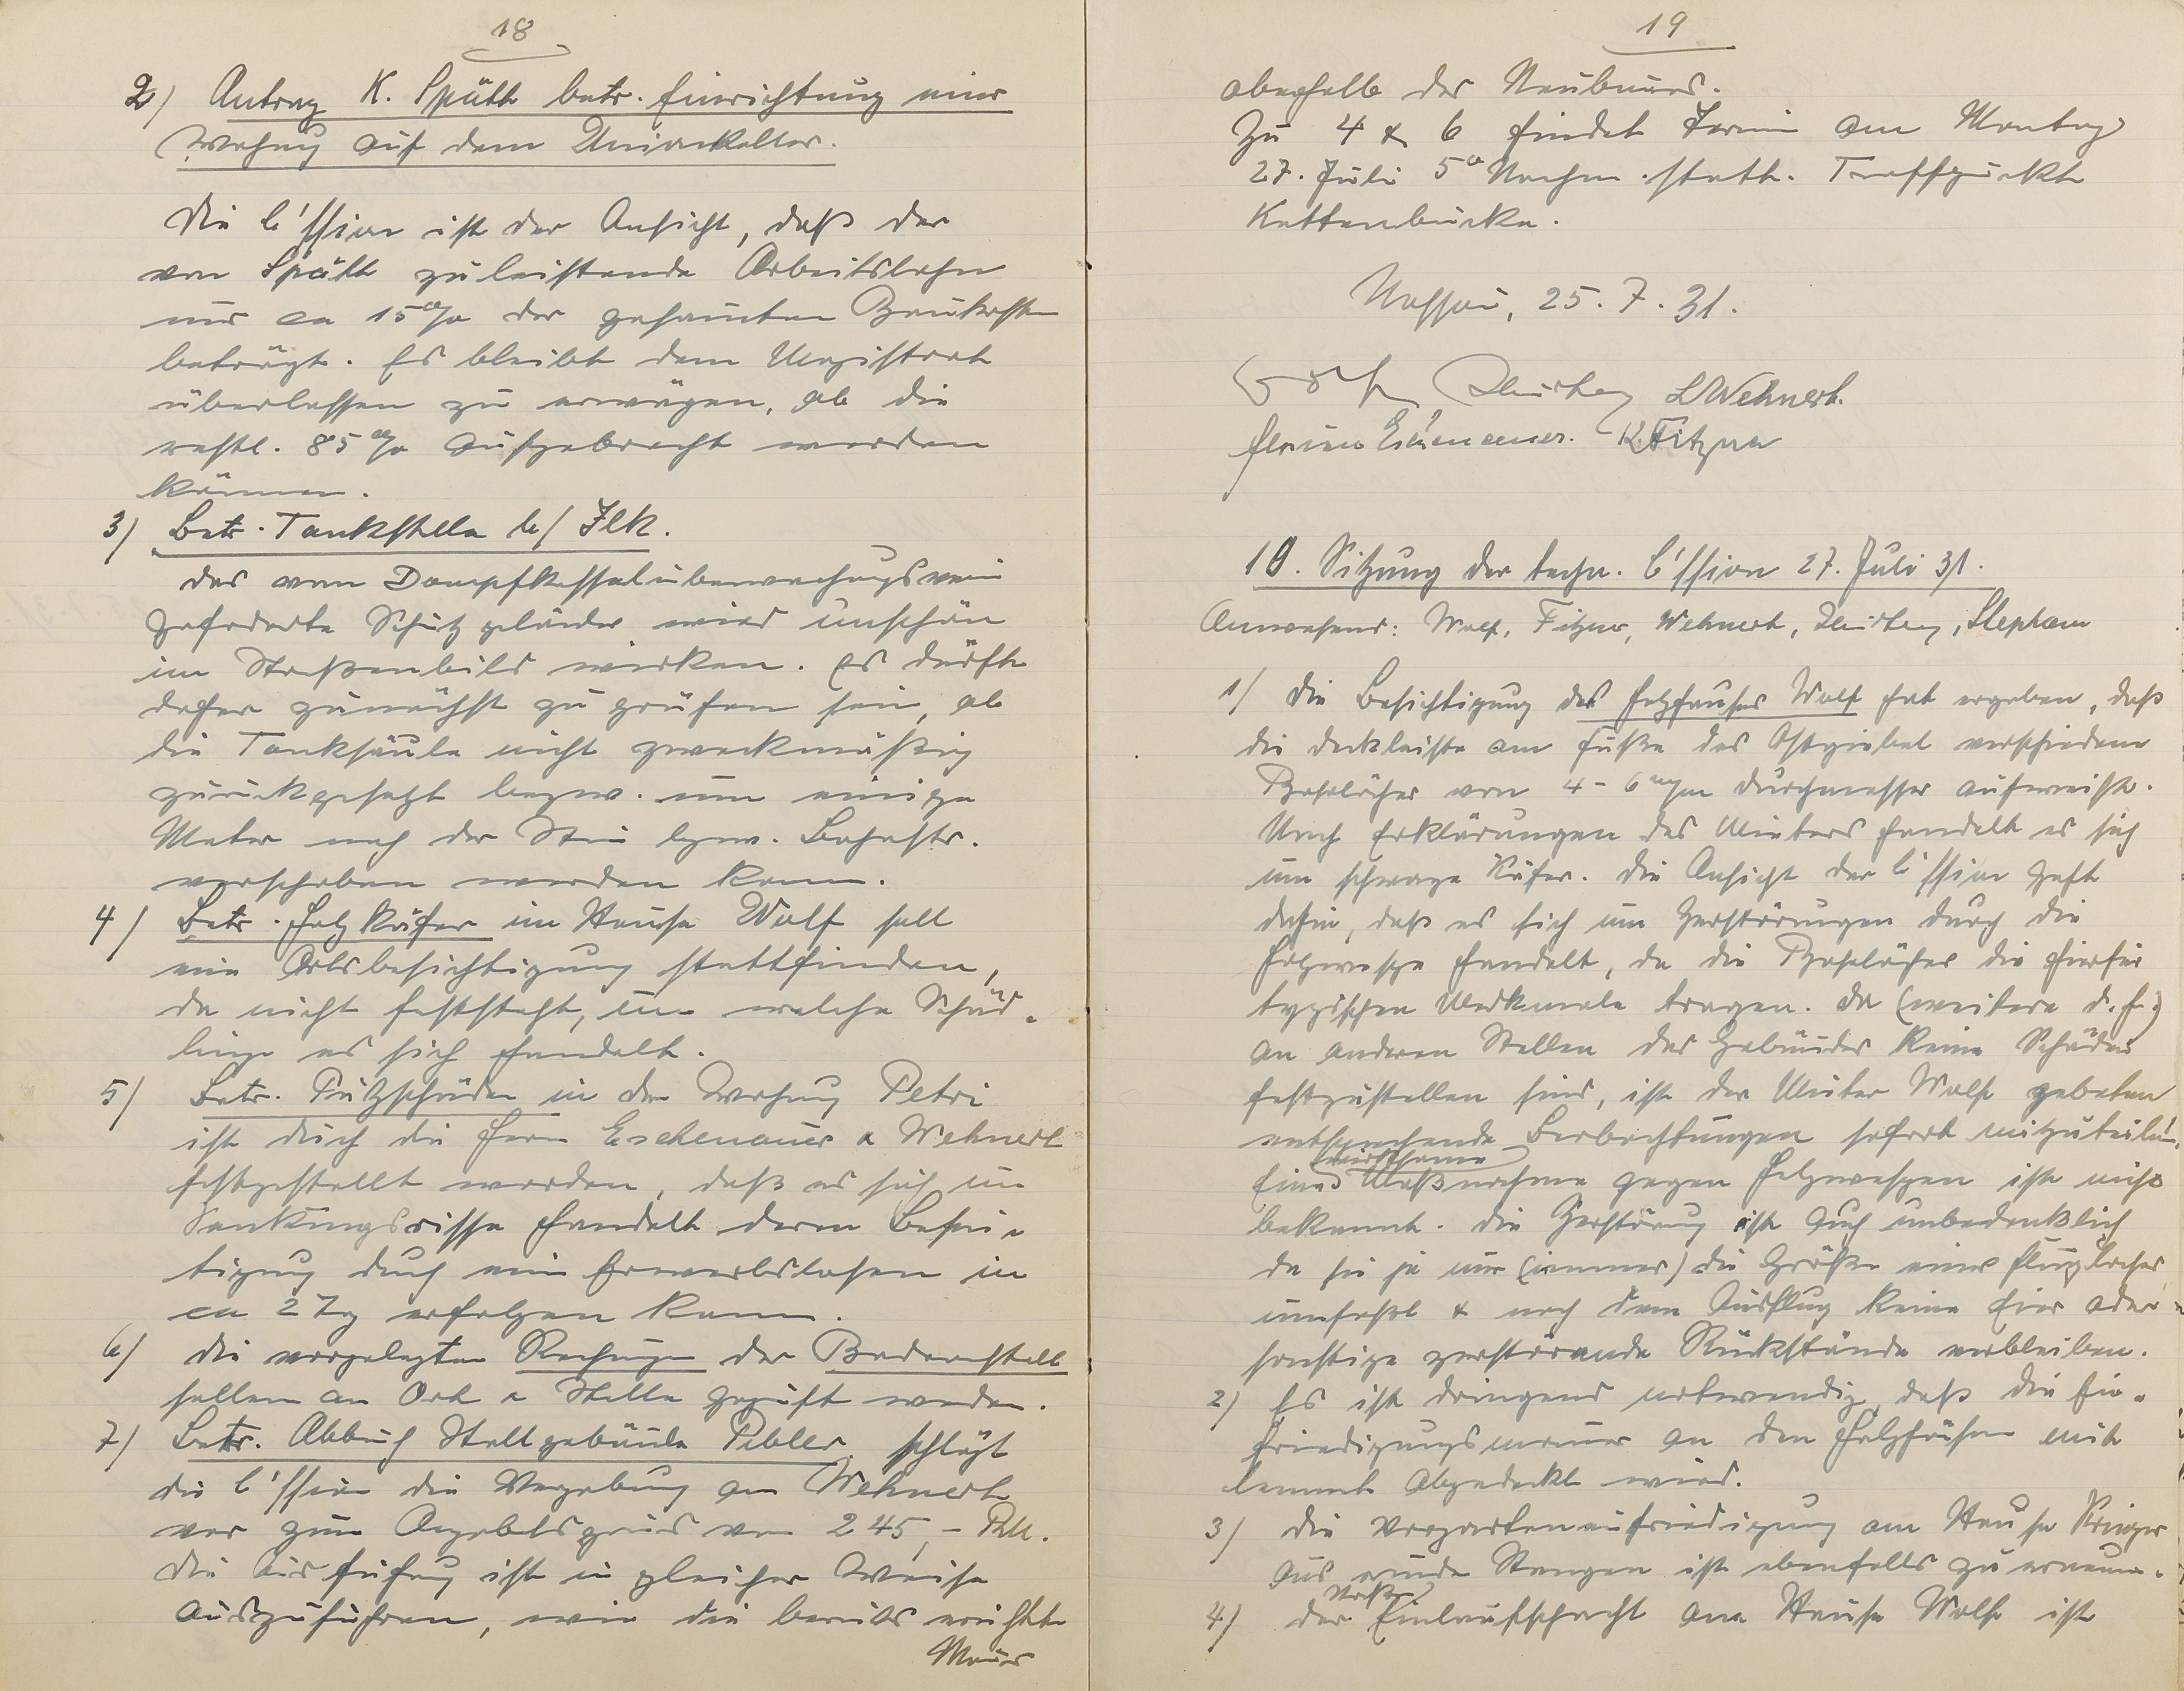 18
2) Antrag K. Späth betr. Einrichtung einer
Wohnung auf dem Unionkeller.
Die C'ssion ist der Ansicht, daß der
von Späth zu leistende Arbeitslohn
nur ca 15 % der gesamten Baukosten
beträgt. Es bleibt dem Magistrat
überlassen zu erwägen, ob die
restl. 85 % aufgebracht werden
können.
3) Betr. Tankstelle b/ Ilk.
Das vom Dampfkesselüberwachungsverein
geforderte Schutzgeländer wird unschön
im Straßenbild wirken. Es dürfte
daher zunächst zu prüfen sein, ob
die Tanksäule nicht zweckmäßig
zurückgesetzt bezw. um einige
Meter nach der Stein bzw. Bahnstr.
verschoben werden kann.
4) Betr. Holzkäfer im Hause Wolf soll
eine Ortsbesichtigung stattfinden,
da nicht feststeht, um welche Schäd-
linge es sich handelt.
5) Betr. Putzschäden in der Wohnung Petri
ist durch die Herrn Eschenauer & Wehnert
festgestellt worden, daß es sich um
Senkungsrisse handelt deren Besei-
tigung durch einen Erwerbslosen in
ca 2 Tg erfolgen kann.
6) Die vorgelegten Rechnungen der Badeanstalt
sollen an Ort & Stelle geprüft werden.
7) Betr. Abbruch Stallgebäude Pebler schlägt
die C'ssion die Vergebung an Wehnert
vor zum Angebotspreis von 245,– RM.
Die Ausführung ist in gleicher Weise
auszuführen, wie die bereits errichtete
Mauer
19
oberhalb des Neubaues.
Zu 4 & 6 findet Termin am Montag
27. Juli 5° Nachm. statt. Treffpunkt
Kettenbrücke.
Nassau, 25. 7. 31.
L Wehnert.
Eschenauer. K Fitzner
10. Sitzung der techn. C'ssion 27. Juli 31.
Anwesend: Wolf, Fitzner, Wehnert, Stephan
1) Die Besichtigung des Holzhauses Wolf hat ergeben, daß
die Deckleiste am Fuße des Ostgiebel verschiedene
Bohrlöcher von 4 - 6 m/m Durchmesser aufweist.
Nach Erklärungen des Mieters handelt es sich
um schwarze Käfer. Die Ansicht der C'ssion geht
dahin, daß es sich um Zerstörungen durch die
Holzwespe handelt, da die Bohrlöcher die hierfür
typischen Merkmale tragen. Da (weitere d. h.)
an anderen Stellen des Gebäudes keine Schäden
festzustellen sind, ist der Mieter Wolf gebeten
entsprechende Beobachtungen sofort mitzuteilen.
wirksame
Eine Maßnahme gegen Holzwespen ist nicht
bekannt. Die Zerstörung ist auch unbedenklich
da sie ja nur (immer) die Größe eines Flugloches
umfaßt & nach dem Ausflug keine Eier oder
sonstige zerstörende Rückstände verbleiben.
2) Es ist dringend notwendig, daß die Ein-
friedigungsmauer an den Holzhäusern mit
Cement abgedeckt wird.
3) Die Vorgarteneinfriedigung am Hause Krieger
aus runde Stangen ist ebenfalls zu erneuern.
4) Der Einlaufschacht am Hause Wolf ist